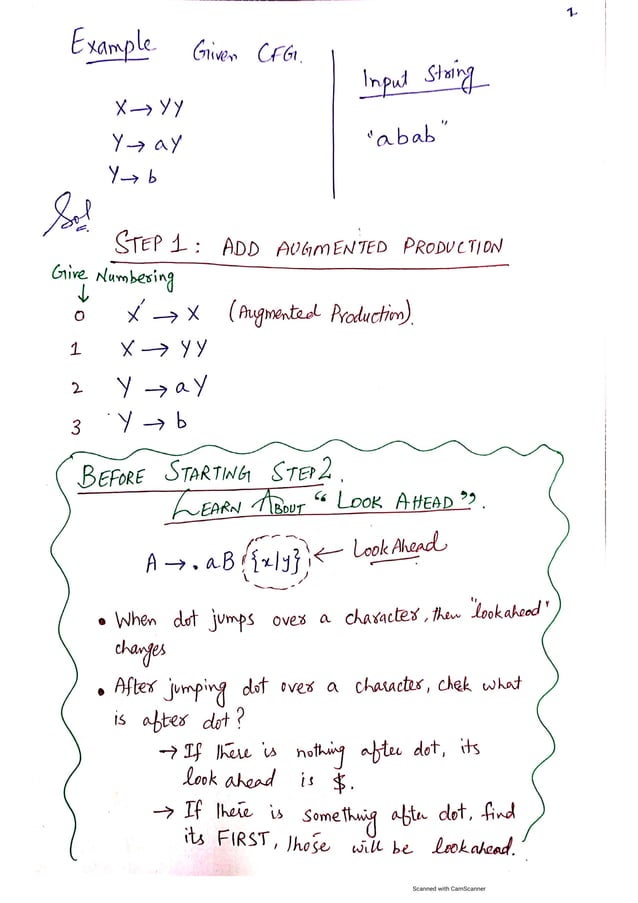 1
Example Given CFG.
Input String
X → YY
Y → aY
Y → b
"abab"
Sol
STEP 1: ADD AUGMENTED PRODUCTION
Give Numbering
0 X' → X (Augmented Production).
1 X → YY
2 Y → aY
3 Y → b
BEFORE STARTING STEP 2.
LEARN ABOUT "LOOK AHEAD".
A → .aB {x|y} ← Look Ahead
• When dot jumps over a character, then "lookahead"
changes
• After jumping dot over a character, chek what
is after dot?
→ If there is nothing after dot, its
look ahead is $.
→ If there is something after dot, find
its FIRST, those will be lookahead.
Scanned with CamScanner